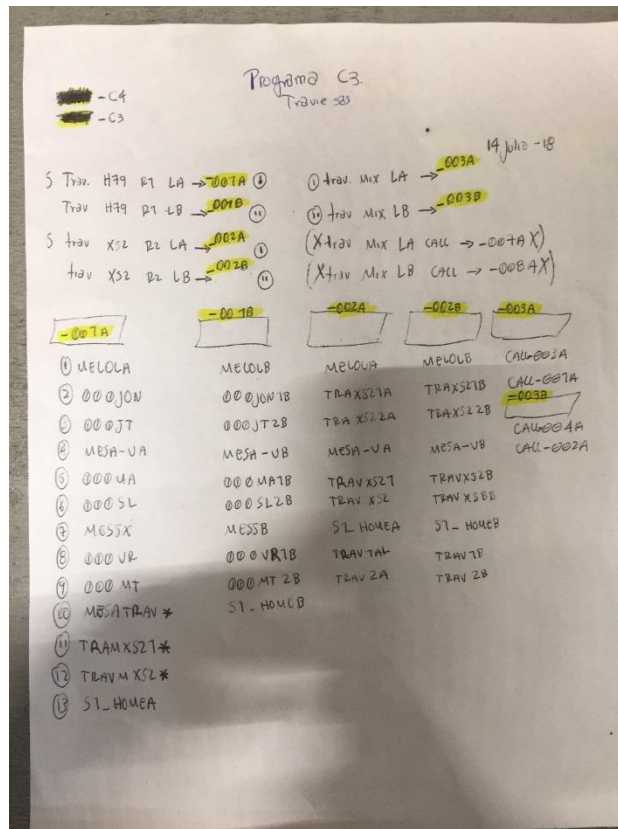 Programa C3.
Traviesas
- C4
- C3
14 Julio - 18
5 Trav. H79 R1 LA → -001A
Trav H79 R1 - LB → -001B 11
5 trav XS2 R2 LA → -002A
trav XS2 R2 LB → -002B 11
trav. Mix LA → -003A
trav Mix LB → -003B
(X trav Mix LA CALL → -007A X)
(X trav Mix LB CALL → -008A X)
-001A
1 MELOLA
2 000JON
3 000JT
4 MESA-UA
5 000UA
6 000SL
7 MESSX
8 000VR
9 000MT
10 MESATRAV *
11 TRAMXS21*
12 TRAVMXS2*
13 S1_HOMEA
-001B
MELOLB
000JON1B
000JT2B
MESA-UB
000MA1B
000SL2B
MESSB
000VR1B
000MT2B
S1_HOMEB
-002A
MELOUA
TRAXS21A
TRAXS22A
MESA-UA
TRAVXS21
TRAVXS2
S1_HOMEA
TRAV1AL
TRAV2A
-002B
MELOLB
TRAXS21B
TRAXS22B
MESA-UB
TRAVXS2B
S1_HOMEB
TRAV1B
TRAV2B
-003A
CALL-003A
CALL-001A
-003B
CALL-004A
CALL-002A